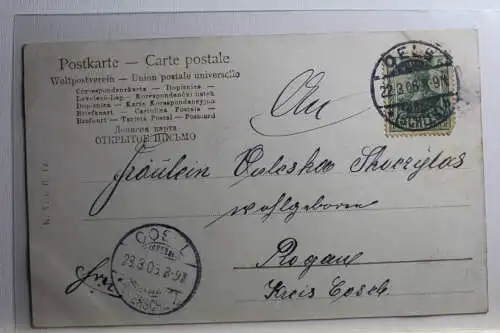 Postkarte — Carte postale
Weltpostverein — Union postale universelle
Correspondenzkarte — Dopisnica —
Levelező-Lap. — Korespondenční lístek
Dopisnica — Karta Korespondencyjna
Briefkaart — Cartolina Postale —
Brefkort — Tarjeta Postal — Postcard
Дописна карта
ОТКРЫТОЕ ПИСЬМО
OELS
22.3.06.
SCHLES
An
Fräulein Valeska
wohlgeboren
Rogau
Kreis Cosel.
COSEL
23.3.06.